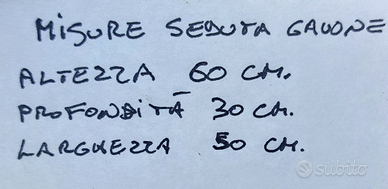 MISURE SEDUTA GAVONE
ALTEZZA 60 CM.
PROFONDITÀ 30 CM.
LARGHEZZA 50 CM.
subito